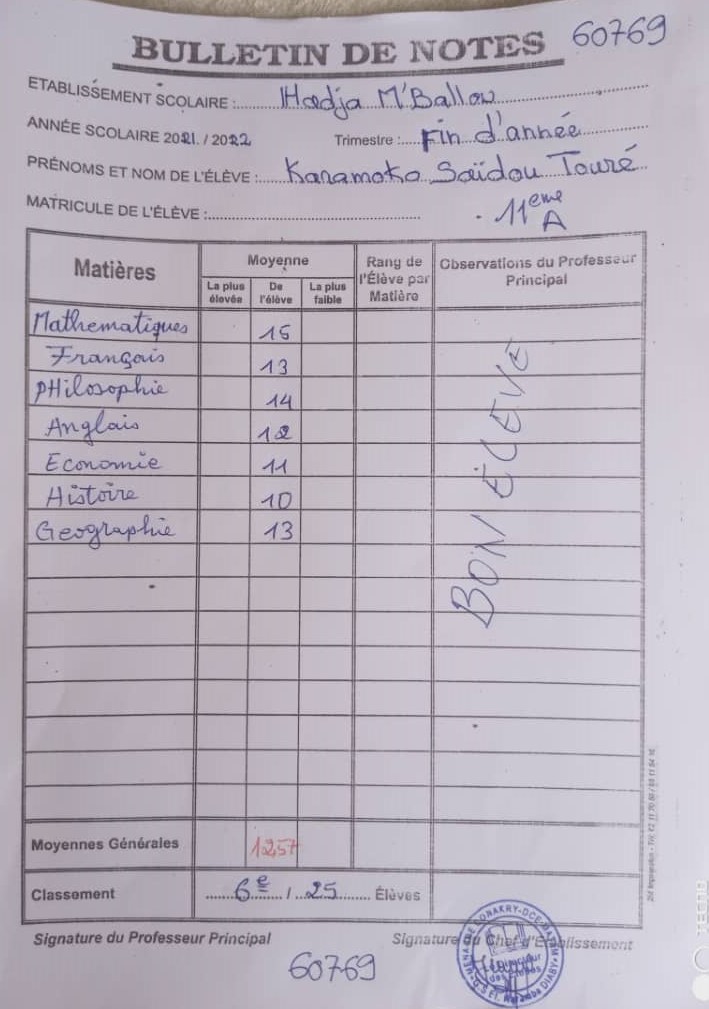 BULLETIN DE NOTES 60769
ETABLISSEMENT SCOLAIRE : Hadja M'Ballou
ANNÉE SCOLAIRE 2021 / 2022 Trimestre : Fin d'année
PRÉNOMS ET NOM DE L'ÉLÈVE : Karamoko Saïdou Touré
MATRICULE DE L'ÉLÈVE : 11eme A
Matières Moyenne Rang de l'Élève par Matière Observations du Professeur Principal
La plus élevée De l'élève La plus faible
Mathematiques 15
Français 13
PHilosophie 14
Anglais 12
Economie 11
Histoire 10
Geographie 13
BON ÉLEVE
Moyennes Générales 1257
Classement 6e / 25 Élèves
Signature du Professeur Principal Signature du Chef d'Etablissement
60769
TECNO